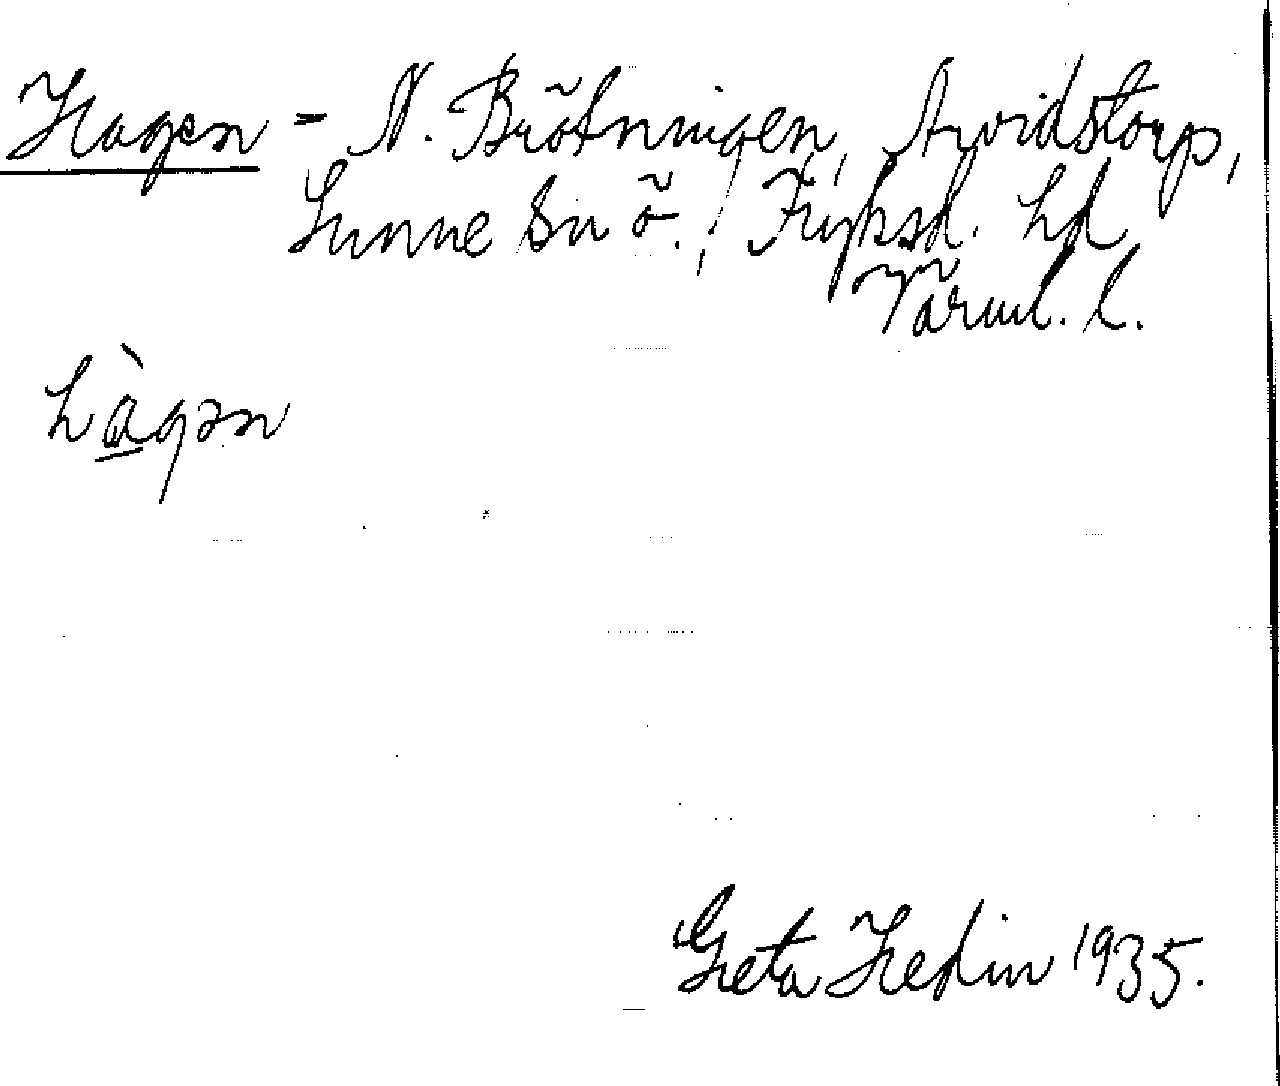 Hagen = N. Brötningen, Arvidstorp,
Sunne sn ö., Fryksd. hd
Värml. l.
hàgən
Greta Hedin 1935.